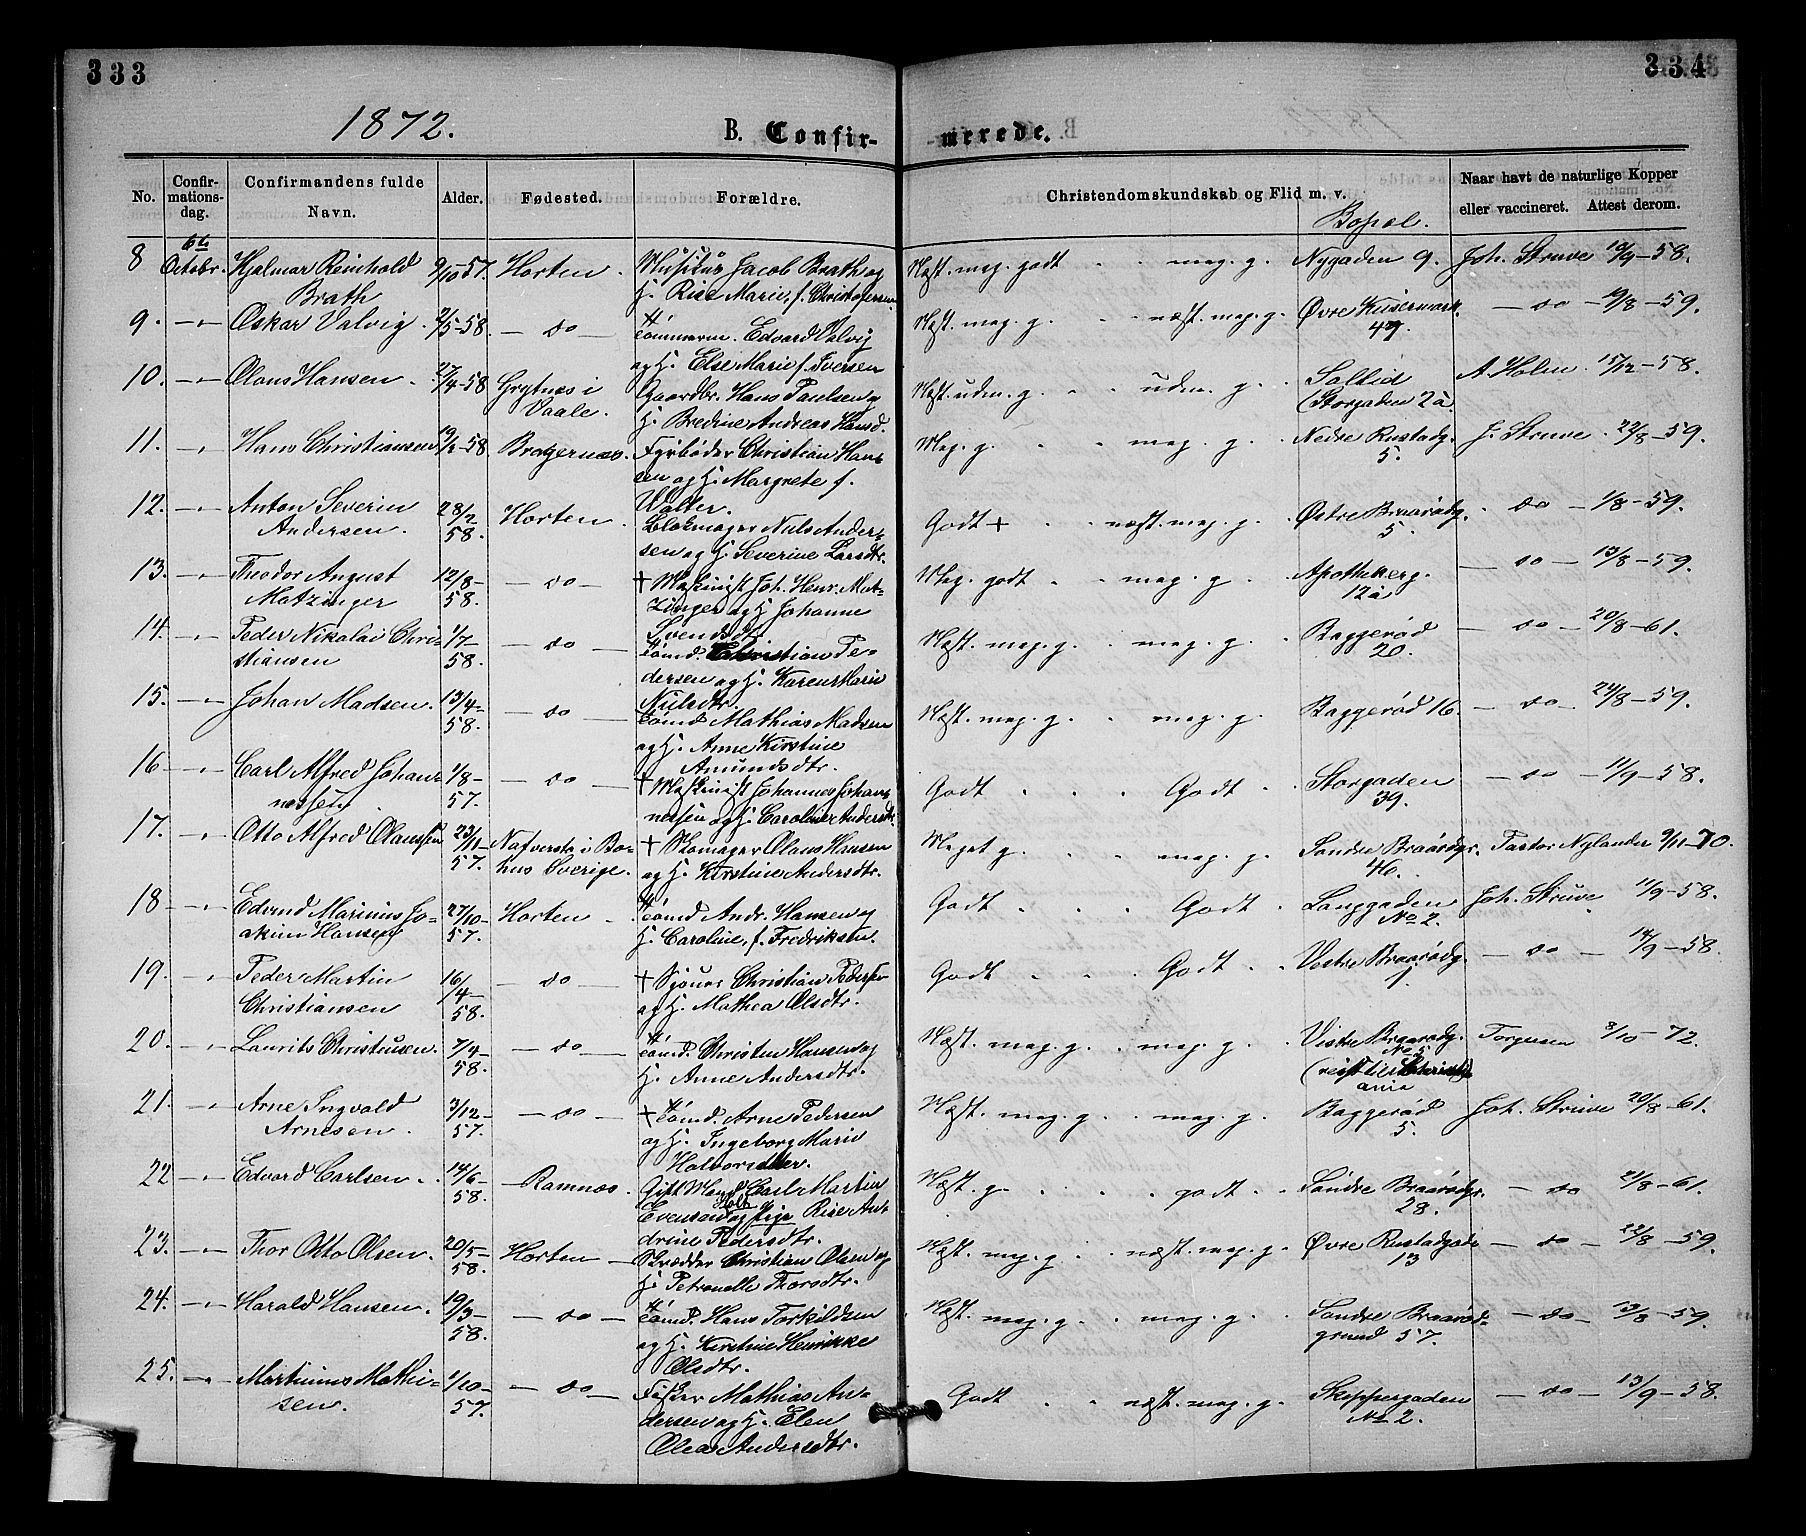 333
334
1872.
B. Confir-
merede.
No.
Confir-
mations-
dag.
Confirmandens fulde
Navn.
Alder.
Fødested.
Forældre.
Christendomskundskab og Flid m. v.
Bopæl.
Naar havt de naturlige Kopper
eller vaccineret. Attest derom.
8 6te Octobr Hjalmar Reinhold 9/10 57. Horten. Jacob Brath og Næst. meg. godt meg. g. Nygaden 9. Joh. Struve 10/9-58.
Brath H. Rise Marie, f. Christofersen
9. Oskar Valvig. 2/5-58. do Tømmerm. Edvard Valvig Næst. meg. g. næst. meg. g. Øvre do 19/8-59.
og H. Else Marie f. Iversen 47.
10. Olaus Hansen. 27/4-58 Grytnes i Gaardbr. Hans Paulsen og Næst. udm. g. udm. g. Solliid A Holm 15/12-58.
Vaale. H. Bredine Andreas Hansd. (Storgaden 2a.
11. Hans Christiansen 19/2-58 Bragernæs. Fyrbøder Christian Han- Meg. g. meg. g. Nedre Rustadg. J. Struve. 22/8-59.
sen og H. Margrete f. 5.
Walter.
12. Anton Severin 28/2- Horten. Blokmager Nils Ander- Godt + næst. meg. g. Østre Braarødg. do 1/8-59.
Andersen. 58. sen og H. Severine Larsdtr. 5.
13. Theodor August 12/8- do + Maskinist Joh. Henr. Mat- Meg. godt meg. g. Apothekerg. do 13/8-59.
Matzinger 58. zinger og H. Johanne 12a
Svendsdtr.
14. Peder Nikolai Chri- 1/7- do Tømd. Christian Pe- Næst. meg. g. meg. g. Baggerød do 20/8-61.
stiansen 58. dersen og H. Karen Marie 20.
Nilsdtr.
15. Johan Madsen. 13/4- do Tømd Mathias Madsen Næst. meg. g. meg. g. Baggerød 16. do 24/8-59.
58. og H. Anne Kirstine
Amundsdtr.
16 Carl Alfred Johan- 1/8- do + Maskinist Johannes Johan- Godt Godt Storgaden do 11/9-58.
nessen 57. nessen og H. Caroline Andersdtr. 39.
17. Otto Alfred Olaussen 23/11- Nafversta i Bo- + Skomager Olaus Hansen Meget g. meg. g. Søndre Braarødgr. Pastor Nylander 9/11-70.
57. hus Sverige. og H. Kirstine Andersdtr. 46.
18 Edvard Marinius Jo- 27/10- Horten Tømd Andr. Hansen og Godt Godt Langgaden Joh. Struve 11/9-58.
akim Hansen 57. H. Caroline, f. Fredriksen. No 2.
19. Peder Martin 16/4- do + Christian Pedersen Godt Godt Vestre Braarødg. do 14/9-58.
Christiansen 58. og H. Mathea Olsdtr. 1.
20. Laurits Christensen. 7/4- do Tømd. Christen Hansen og Næst. meg. g. meg. g. Vestre Braarødg. Torgersen 8/10-72.
58. H. Anne Andersdtr. No 5
(reist til Christi-
ania
21. Arne Ingvald 3/12- do + Tømd. Arne Pedersen Næst. meg. g. meg. g. Baggerød Joh. Struve 20/8-61.
Arnesen. 57. og H. Ingeborg Marie 5.
Halvorsdtr.
22 Edvard Carlsen. 14/6- Ramnæs. Gift Mand Carl Martin Næst. g. godt Søndre Braarødgr. do 21/8-61.
58. Evensen og Pige Rise An- 28.
drine Pedersdtr.
23. Thor Otto Olsen. 20/5- Horten Skrædder Christian Olsen og Næst. meg. g næst. meg. g. Øvre Rustadgade do 22/8-59.
58. H. Petronelle Thorsdtr. 13
24. Harald Hansen. 19/3- do Tømd. Hans Torkildsen Næst. meg. g meg. g. Søndre Braarød- do 13/8-59.
58. og H. Kirstine Henrikke grund 57.
Olsdtr.
25. Martinus Mathi- 1/10- do Fisker Mathias An- Godt næst. meg. g. Skippergaden do 13/9-58.
sen. 57. dersen og H. Elen No 2.
Oleas Andersdtr.